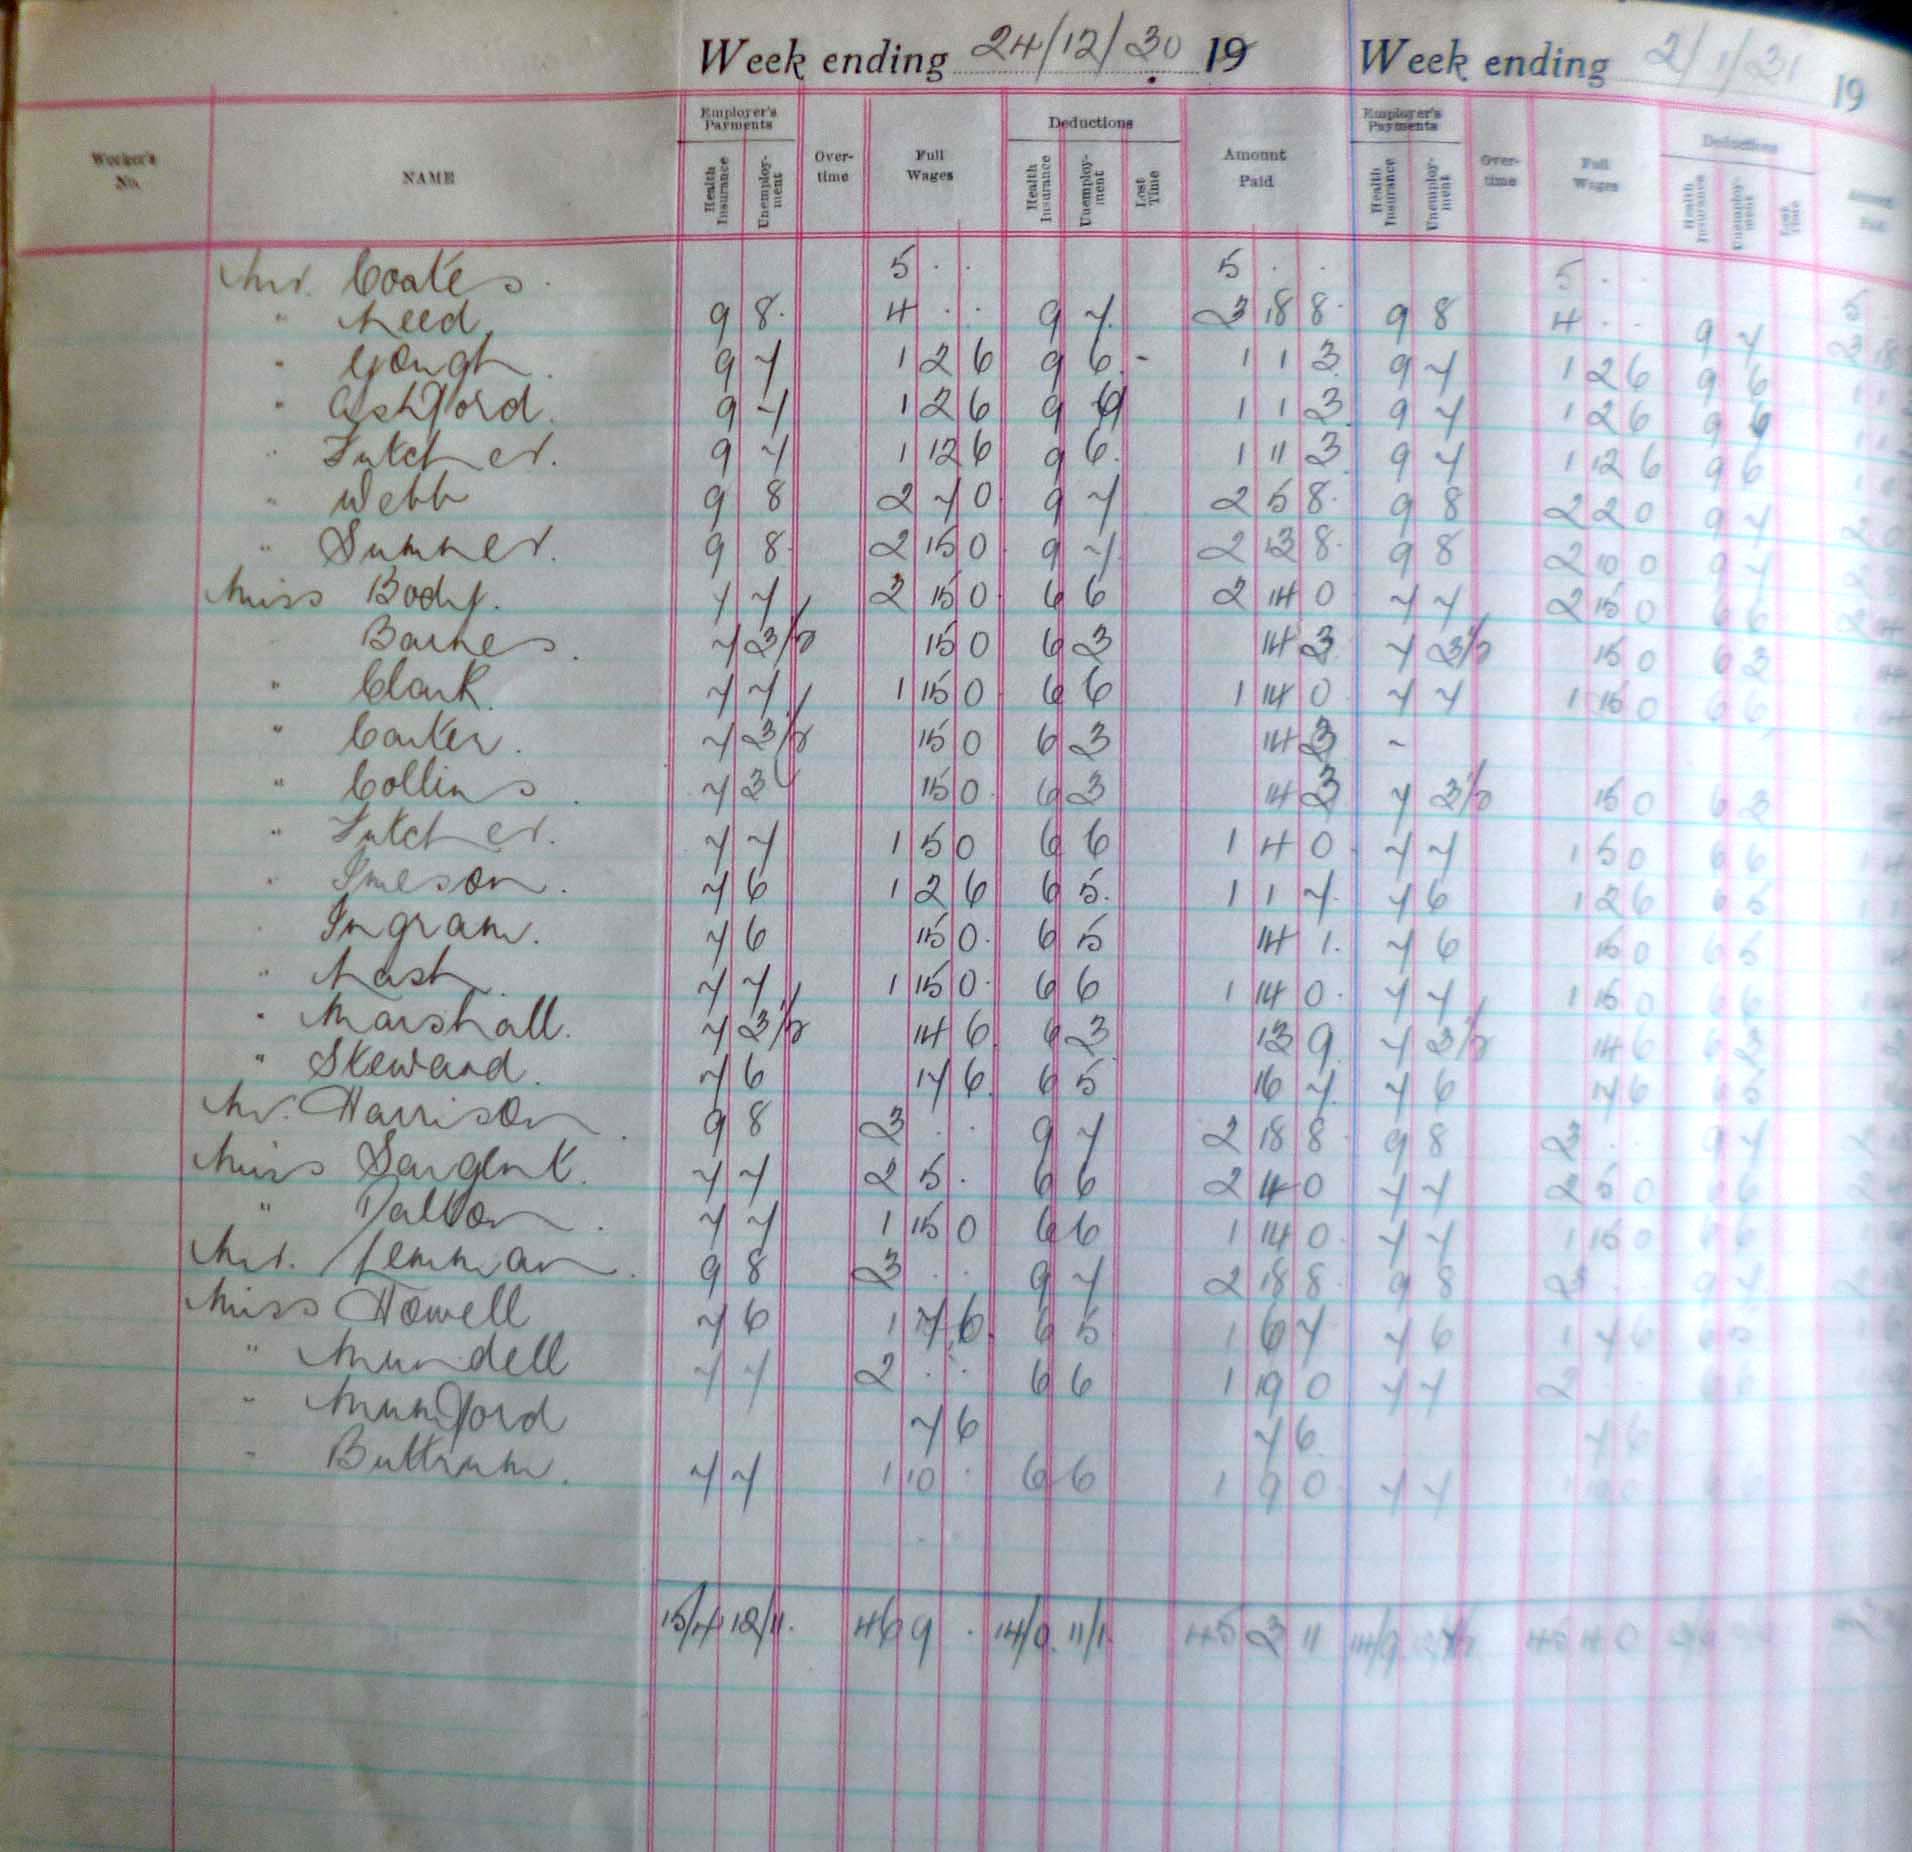 Week ending 24/12/30 19 Week ending 2/1/31 19
Employer's Payments Deductions Employer's Payments Deductions
Worker's No. NAME Health Insurance Unemploy-ment Over-time Full Wages Health Insurance Unemploy-ment Lost Time Amount Paid Health Insurance Unemploy-ment Over-time Full Wages Health Insurance Unemploy-ment Lost Time Amount Paid
Mr. Coates 5 . . 5 . . 5 . . 5
" Reed 9 8 4 . . 9 7 3 18 8 9 8 4 . . 9 7 3 18
" Gough 9 7 1 2 6 9 6 - 1 1 3 9 7 1 2 6 9 6 1 1
" Ashford 9 7 1 2 6 9 6 1 1 3 9 7 1 2 6 9 6 1 1
" Futcher 9 7 1 12 6 9 6 1 11 3 9 7 1 12 6 9 6 1
" Webb 9 8 2 7 0 9 7 2 5 8 9 8 2 2 0 9 7 2 0
" Sumner 9 8 2 15 0 9 7 2 13 8 9 8 2 10 0 9 7 2
Miss Body 7 7 2 15 0 6 6 2 14 0 7 7 2 15 0 6 6 2
Barnes 7 3½ 15 0 6 3 14 3 7 3½ 15 0 6 3
" Clark 7 7 1 15 0 6 6 1 14 0 7 7 1 15 0 6 6
" Carter 7 3½ 15 0 6 3 14 3 -
" Collins 7 3 15 0 6 3 14 3 7 3½ 15 0 6 3
" Futcher 7 7 1 5 0 6 6 1 4 0 7 7 1 5 0 6 6 1
" Imeson 7 6 1 2 6 6 5 1 1 7 7 6 1 2 6 6 5 1
" Ingram 7 6 15 0 6 5 14 1 7 6 15 0 6 5
" Nash 7 7 1 15 0 6 6 1 14 0 7 7 1 15 0 6 6 1
" Marshall 7 3½ 14 6 6 3 13 9 7 3½ 14 6 6 3
" Skeward 7 6 17 6 6 5 16 7 7 6 17 6 6 5
Mr. Harrison 9 8 3 . . 9 7 2 18 8 9 8 3 . . 9 7 2
Miss Sargent 7 7 2 5 . 6 6 2 4 0 7 7 2 5 0 6 6 2
" Dalton 7 7 1 15 0 6 6 1 14 0 7 7 1 15 0 6 6 1
Mr. Lemman 9 8 3 . . 9 7 2 18 8 9 8 3 . . 9 7 2
Miss Howell 7 6 1 7 6 6 5 1 6 7 7 6 1 7 6 6 5
" Mundell 7 7 2 . . 6 6 1 19 0 7 7 2 . . 6 6
" Mumford 7 6 7 6 7 6
" Buttrum 7 7 1 10 . 6 6 1 9 0 7 7 1 10 0
15/4 12/11 46 9 . 14/0 11/1 45 3 11 14/9 45 4 0